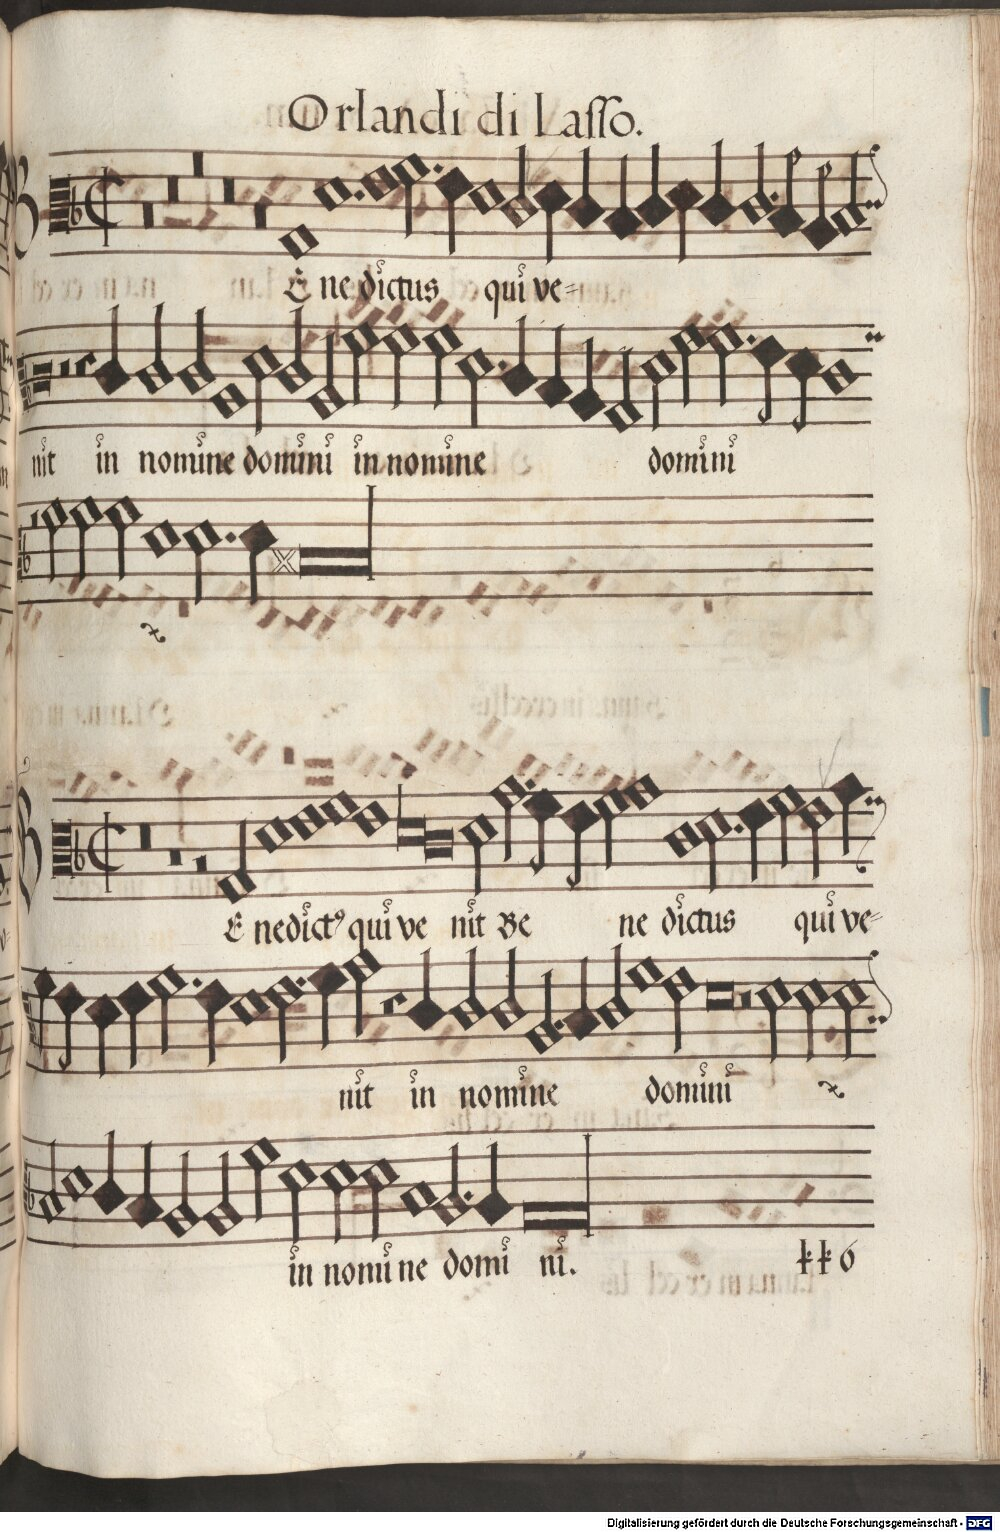 Orlandi di Lasso.
BEnedictus qui ve=
nit in nomine domini in nomine domini
BEnedictꝰ qui ve nit Be ne dictus qui ve=
nit in nomine domini
in nomi ne domi ni.
116
Digitalisierung gefördert durch die Deutsche Forschungsgemeinschaft - DFG